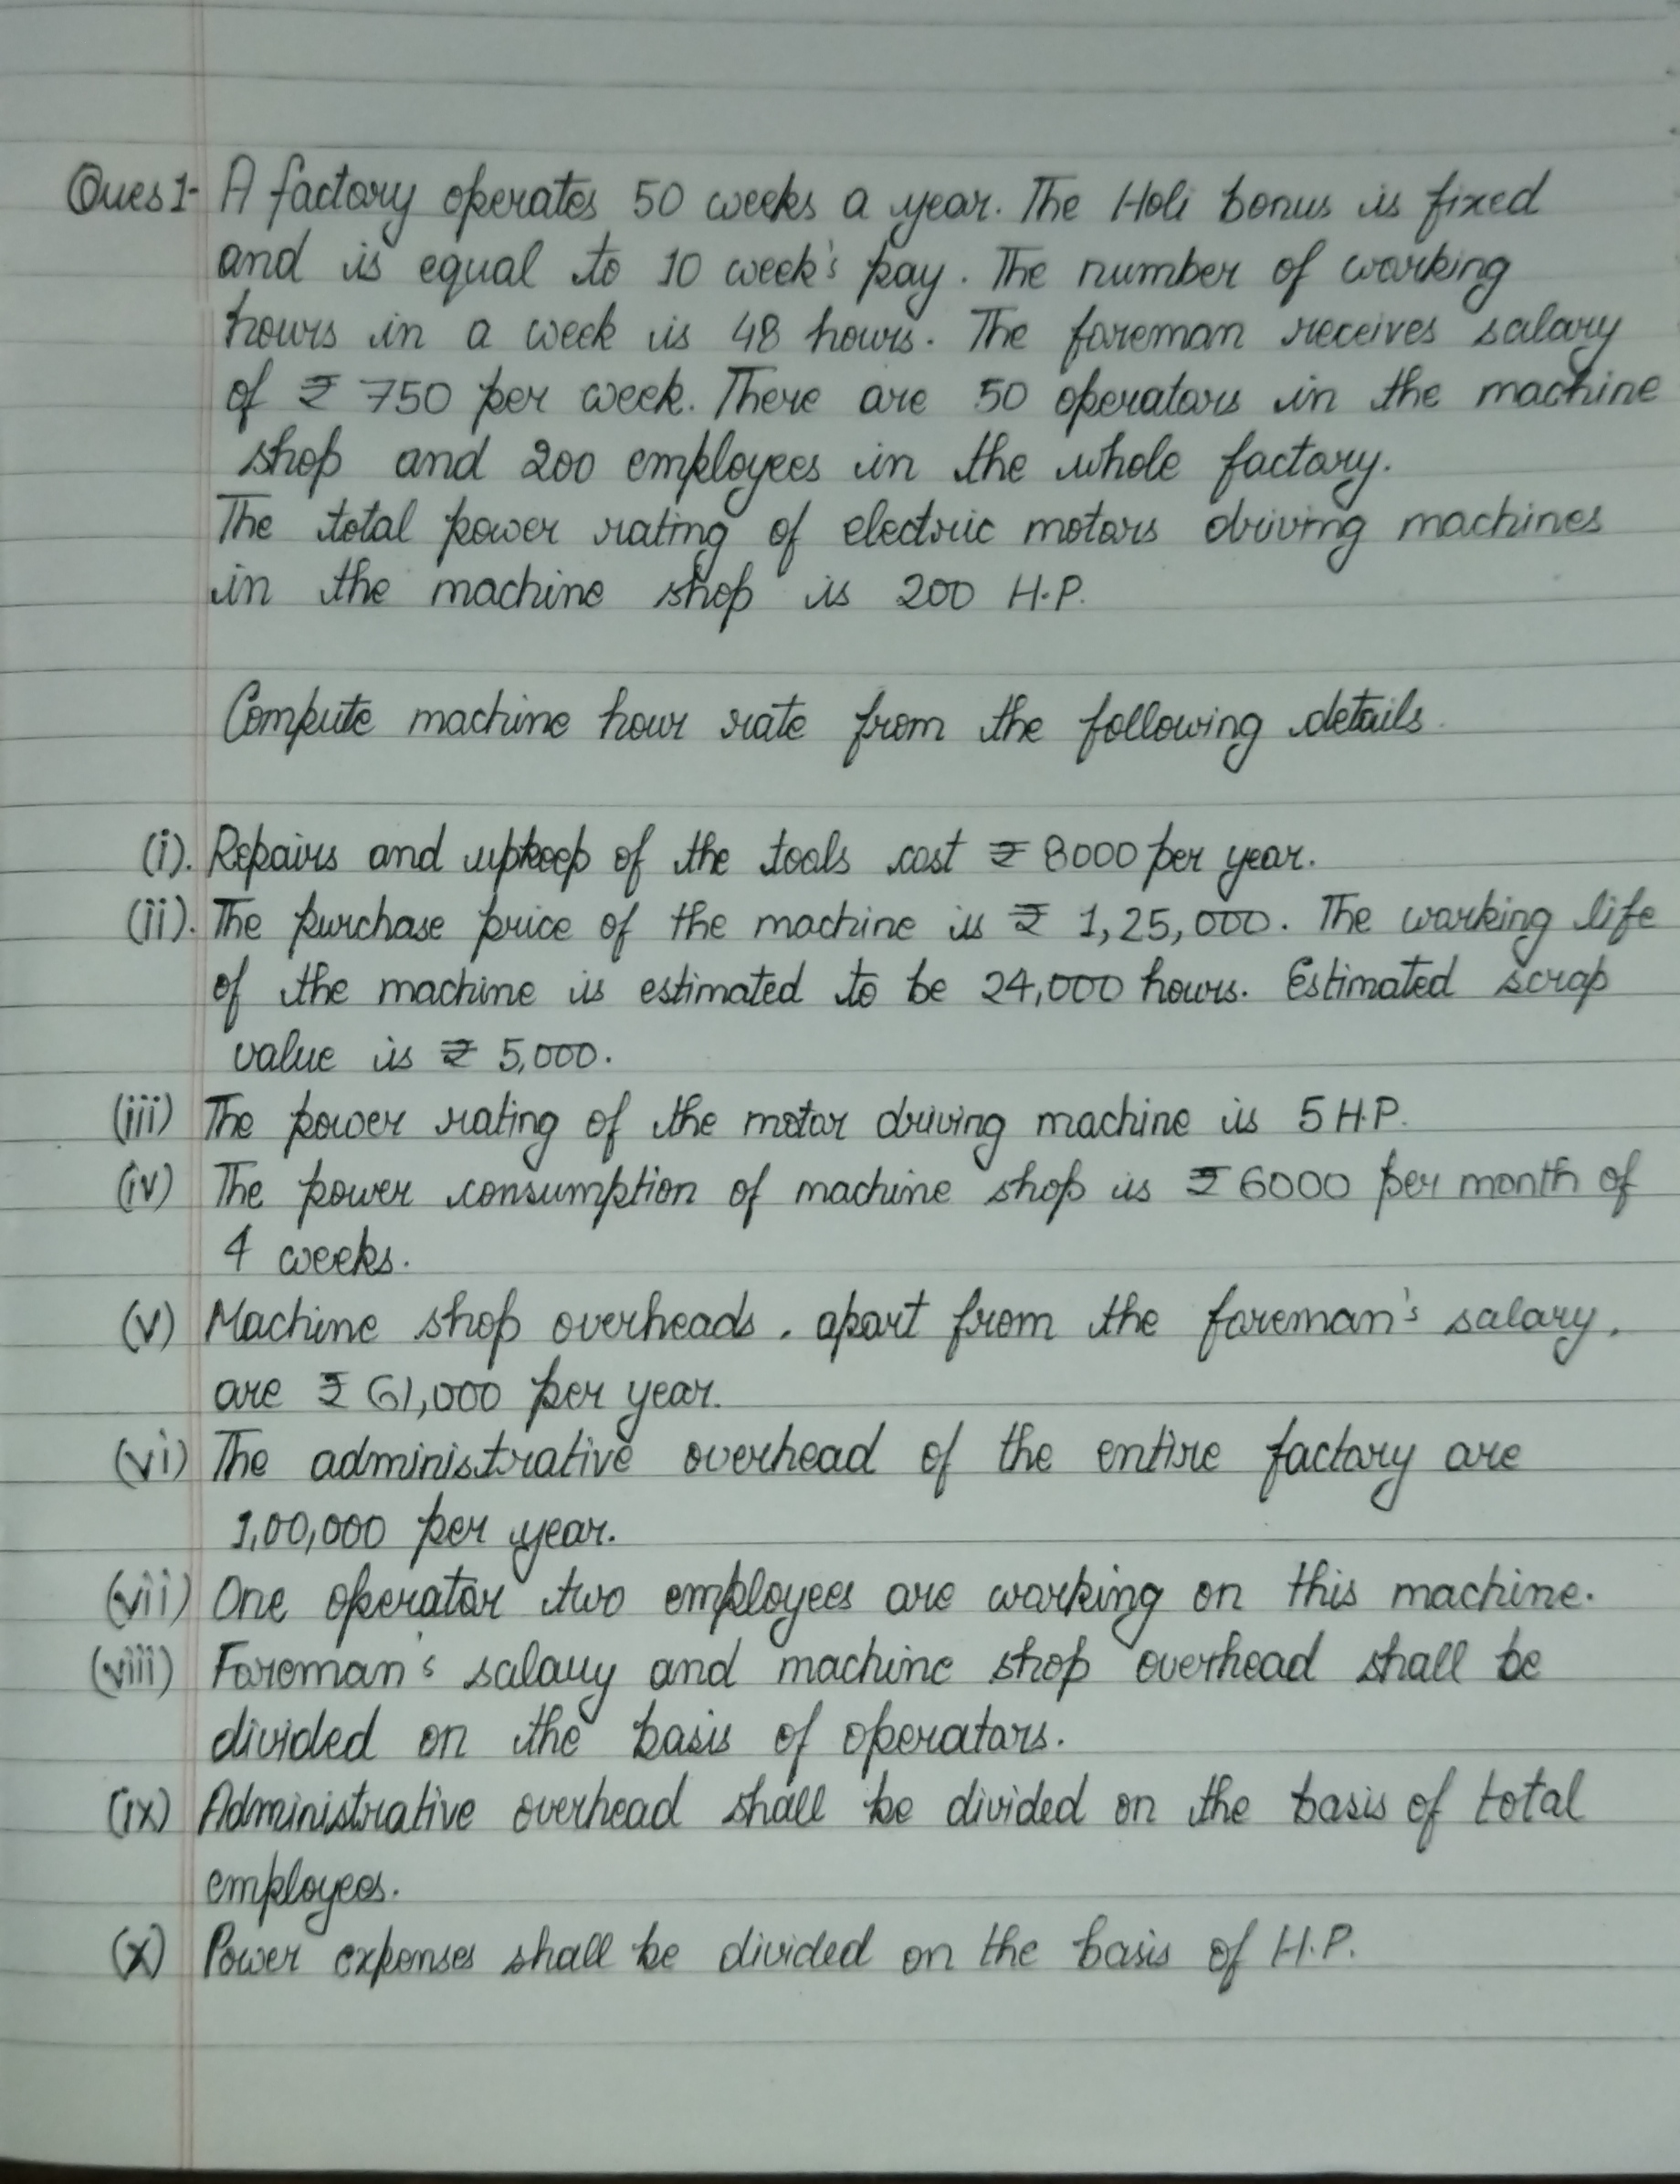 Ques 1- A factory operates 50 weeks a year. The Holi bonus is fixed
and is equal to 10 week's pay. The number of working
hours in a week is 48 hours. The foreman receives salary
of ₹ 750 per week. There are 50 operators in the machine
shop and 200 employees in the whole factory.
The total power rating of electric motors driving machines
in the machine shop is 200 H.P.
Compute machine hour rate from the following details.
(i). Repairs and upkeep of the tools cost ₹ 8000 per year.
(ii). The purchase price of the machine is ₹ 1,25,000. The working life
of the machine is estimated to be 24,000 hours. Estimated scrap
value is ₹ 5,000.
(iii) The power rating of the motor driving machine is 5 H.P.
(iv) The power consumption of machine shop is ₹ 6000 per month of
4 weeks.
(v) Machine shop overheads, apart from the foreman's salary,
are ₹ 61,000 per year.
(vi) The administrative overhead of the entire factory are
1,00,000 per year.
(vii) One operator two employees are working on this machine.
(viii) Foreman's salary and machine shop overhead shall be
divided on the basis of operators.
(ix) Administrative overhead shall be divided on the basis of total
employees.
(x) Power expenses shall be divided on the basis of H.P.